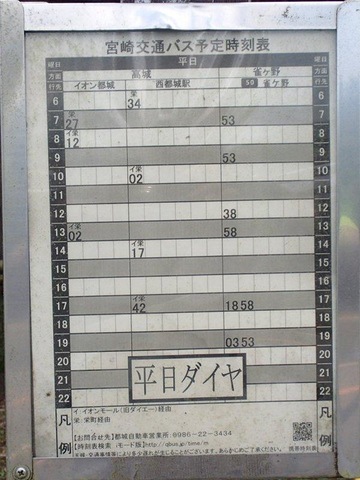 宮崎交通バス予定時刻表
曜日 平日 曜日
方面 高城 雀ケ野 方面
行先 イオン都城 西都城駅 50 雀ケ野 行先
6 栄 34 6
7 栄 27 53 7
8 イ栄 12 8
9 53 9
10 イ栄 02 10
11 11
12 38 12
13 イ栄 02 58 13
14 イ栄 17 14
15 15
16 16
17 イ栄 42 18 58 17
18 18
19 03 53 19
20 20
21 21
22 22
平日ダイヤ
凡例 イ:イオンモール(旧ダイエー)経由
栄:栄町経由
【お問合せ先】都城自動車営業所 0986-22-3434
【時刻表検索 (モード版)http://qbus.jp/time/m
交通事情等により多少遅れが生じることがございます。あらかじめご了承ください。
携帯時刻表